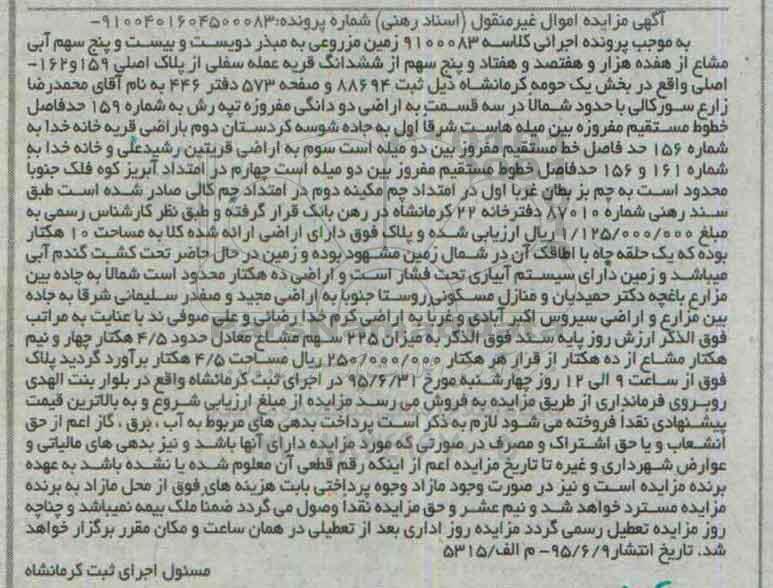 آگهی مزایده اموال غیرمنقول (اسناد رهنی) شماره پرونده:۹۱۰۰۴۰۱۶۰۴۵۰۰۰۰۸۳-
به موجب پرونده اجرائی کلاسه ۹۱۰۰۰۸۳ زمین مزروعی به مبذر دویست و بیست و پنج سهم آبی
مشاع از هفده هزار و هفتصد و هفتاد و پنج سهم از ششدانگ قریه عمله سفلی از پلاک اصلی ۱۵۹و۱۶۲-
اصلی واقع در بخش یک حومه کرمانشاه ذیل ثبت ۸۸۶۹۴ و صفحه ۵۷۳ دفتر ۴۴۶ به نام آقای محمدرضا
زارع سورکالی با حدود شمالا در سه قسمت به اراضی دو دانگی مفروزه تپه رش به شماره ۱۵۹ حدفاصل
خطوط مستقیم مفروزه بین میله هاست شرقا اول به جاده شوسه کردستان دوم باراضی قریه خانه خدا به
شماره ۱۵۶ حد فاصل خط مستقیم مفروز بین دو میله است سوم به اراضی قریتین رشیدعلی و خانه خدا به
شماره ۱۶۱ و ۱۵۶ حدفاصل خطوط مستقیم مفروز بین دو میله است چهارم در امتداد آبریز کوه فلک جنوبا
محدود است به چم بز بطان غربا اول در امتداد چم مکینه دوم در امتداد چم کالی صادر شده است طبق
سند رهنی شماره ۸۷۰۱۰ دفترخانه ۲۲ کرمانشاه در رهن بانک قرار گرفته و طبق نظر کارشناس رسمی به
مبلغ ۱/۱۲۵/۰۰۰/۰۰۰ ریال ارزیابی شده و پلاک فوق دارای اراضی ارائه شده کلا به مساحت ۱۰ هکتار
بوده که یک حلقه چاه با اطاقک آن در شمال زمین مشهود بوده و زمین در حال حاضر تحت کشت گندم آبی
میباشد و زمین دارای سیستم آبیاری تحت فشار است و اراضی ده هکتار محدود است شمالا به جاده بین
مزارع باغچه دکتر حمیدیان و منازل مسکونی روستا جنوبا به اراضی مجید و صفدر سلیمانی شرقا به جاده
بین مزارع و اراضی سیروس اکبر آبادی و غربا به اراضی کرم خدا رضائی و علی صوفی ند با عنایت به مراتب
فوق الذکر ارزش روز پایه سند فوق الذکر به میزان ۲۲۵ سهم مشاع معادل حدود ۴/۵ هکتار چهار و نیم
هکتار مشاع از ده هکتار از قرار هر هکتار ۲۵۰/۰۰۰/۰۰۰ ریال مساحت ۴/۵ هکتار برآورد گردید پلاک
فوق از ساعت ۹ الی ۱۲ روز چهارشنبه مورخ ۹۵/۶/۳۱ در اجرای ثبت کرمانشاه واقع در بلوار بنت الهدی
روبروی فرمانداری از طریق مزایده به فروش می رسد مزایده از مبلغ ارزیابی شروع و به بالاترین قیمت
پیشنهادی نقدا فروخته می شود لازم به ذکر است پرداخت بدهی های مربوط به آب ، برق ، گاز اعم از حق
انشعاب و یا حق اشتراک و مصرف در صورتی که مورد مزایده دارای آنها باشد و نیز بدهی های مالیاتی و
عوارض شهرداری و غیره تا تاریخ مزایده اعم از اینکه رقم قطعی آن معلوم شده یا نشده باشد به عهده
برنده مزایده است و نیز در صورت وجود مازاد وجوه پرداختی بابت هزینه های فوق از محل مازاد به برنده
مزایده مسترد خواهد شد و نیم عشر و حق مزایده نقدا وصول می گردد ضمنا ملک بیمه نمیباشد و چناچه
روز مزایده تعطیل رسمی گردد مزایده روز اداری بعد از تعطیلی در همان ساعت و مکان مقرر برگزار خواهد
شد. تاریخ انتشار۹۵/۶/۹- م الف/۵۳۱۵
مسئول اجرای ثبت کرمانشاه